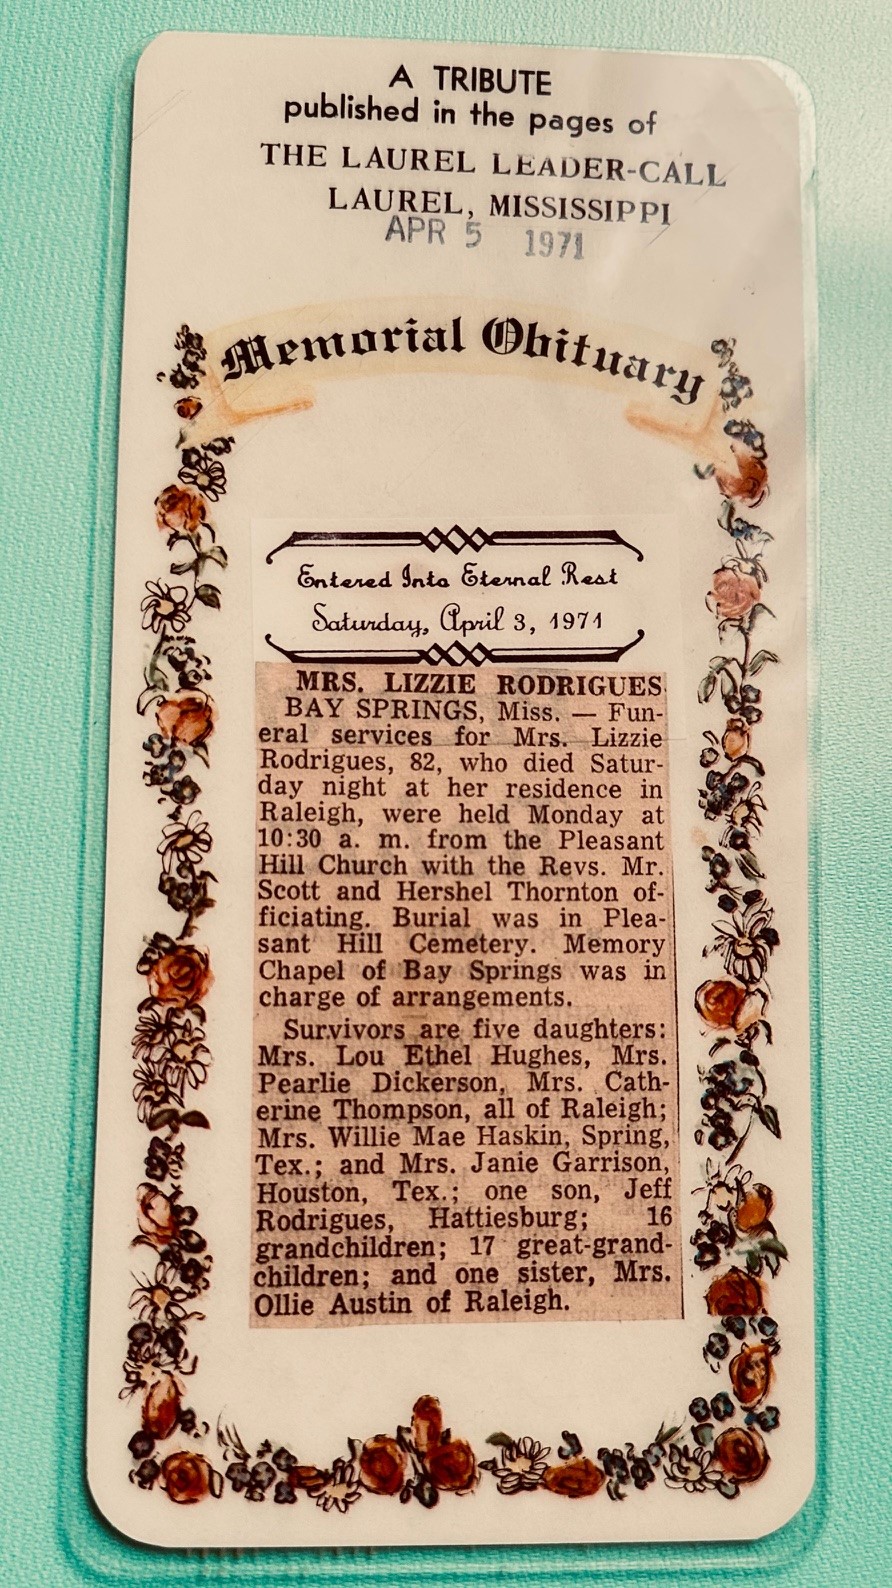 A TRIBUTE
published in the pages of
THE LAUREL LEADER-CALL
LAUREL, MISSISSIPPI
APR 5 1971
Memorial Obituary
Entered Into Eternal Rest
Saturday, April 3, 1971
MRS. LIZZIE RODRIGUES
BAY SPRINGS, Miss. — Fun-
eral services for Mrs. Lizzie
Rodrigues, 82, who died Satur-
day night at her residence in
Raleigh, were held Monday at
10:30 a. m. from the Pleasant
Hill Church with the Revs. Mr.
Scott and Hershel Thornton of-
ficiating. Burial was in Plea-
sant Hill Cemetery. Memory
Chapel of Bay Springs was in
charge of arrangements.
Survivors are five daughters:
Mrs. Lou Ethel Hughes, Mrs.
Pearlie Dickerson, Mrs. Cath-
erine Thompson, all of Raleigh;
Mrs. Willie Mae Haskin, Spring,
Tex.; and Mrs. Janie Garrison,
Houston, Tex.; one son, Jeff
Rodrigues, Hattiesburg; 16
grandchildren; 17 great-grand-
children; and one sister, Mrs.
Ollie Austin of Raleigh.